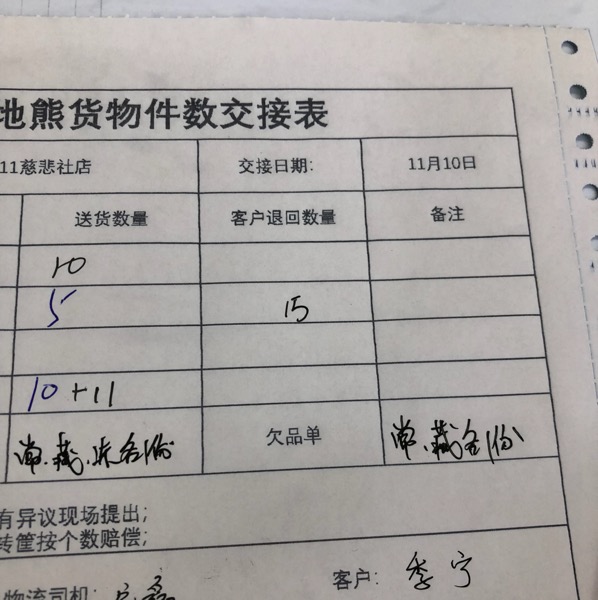 地熊货物件数交接表
11慈悲社店 交接日期: 11月10日
送货数量 客户退回数量 备注
10
5 15
10+11
常.藏.冻各1份 欠品单 常.藏各1份
有异议现场提出;
转筐按个数赔偿;
物流司机: 客户: 季宁